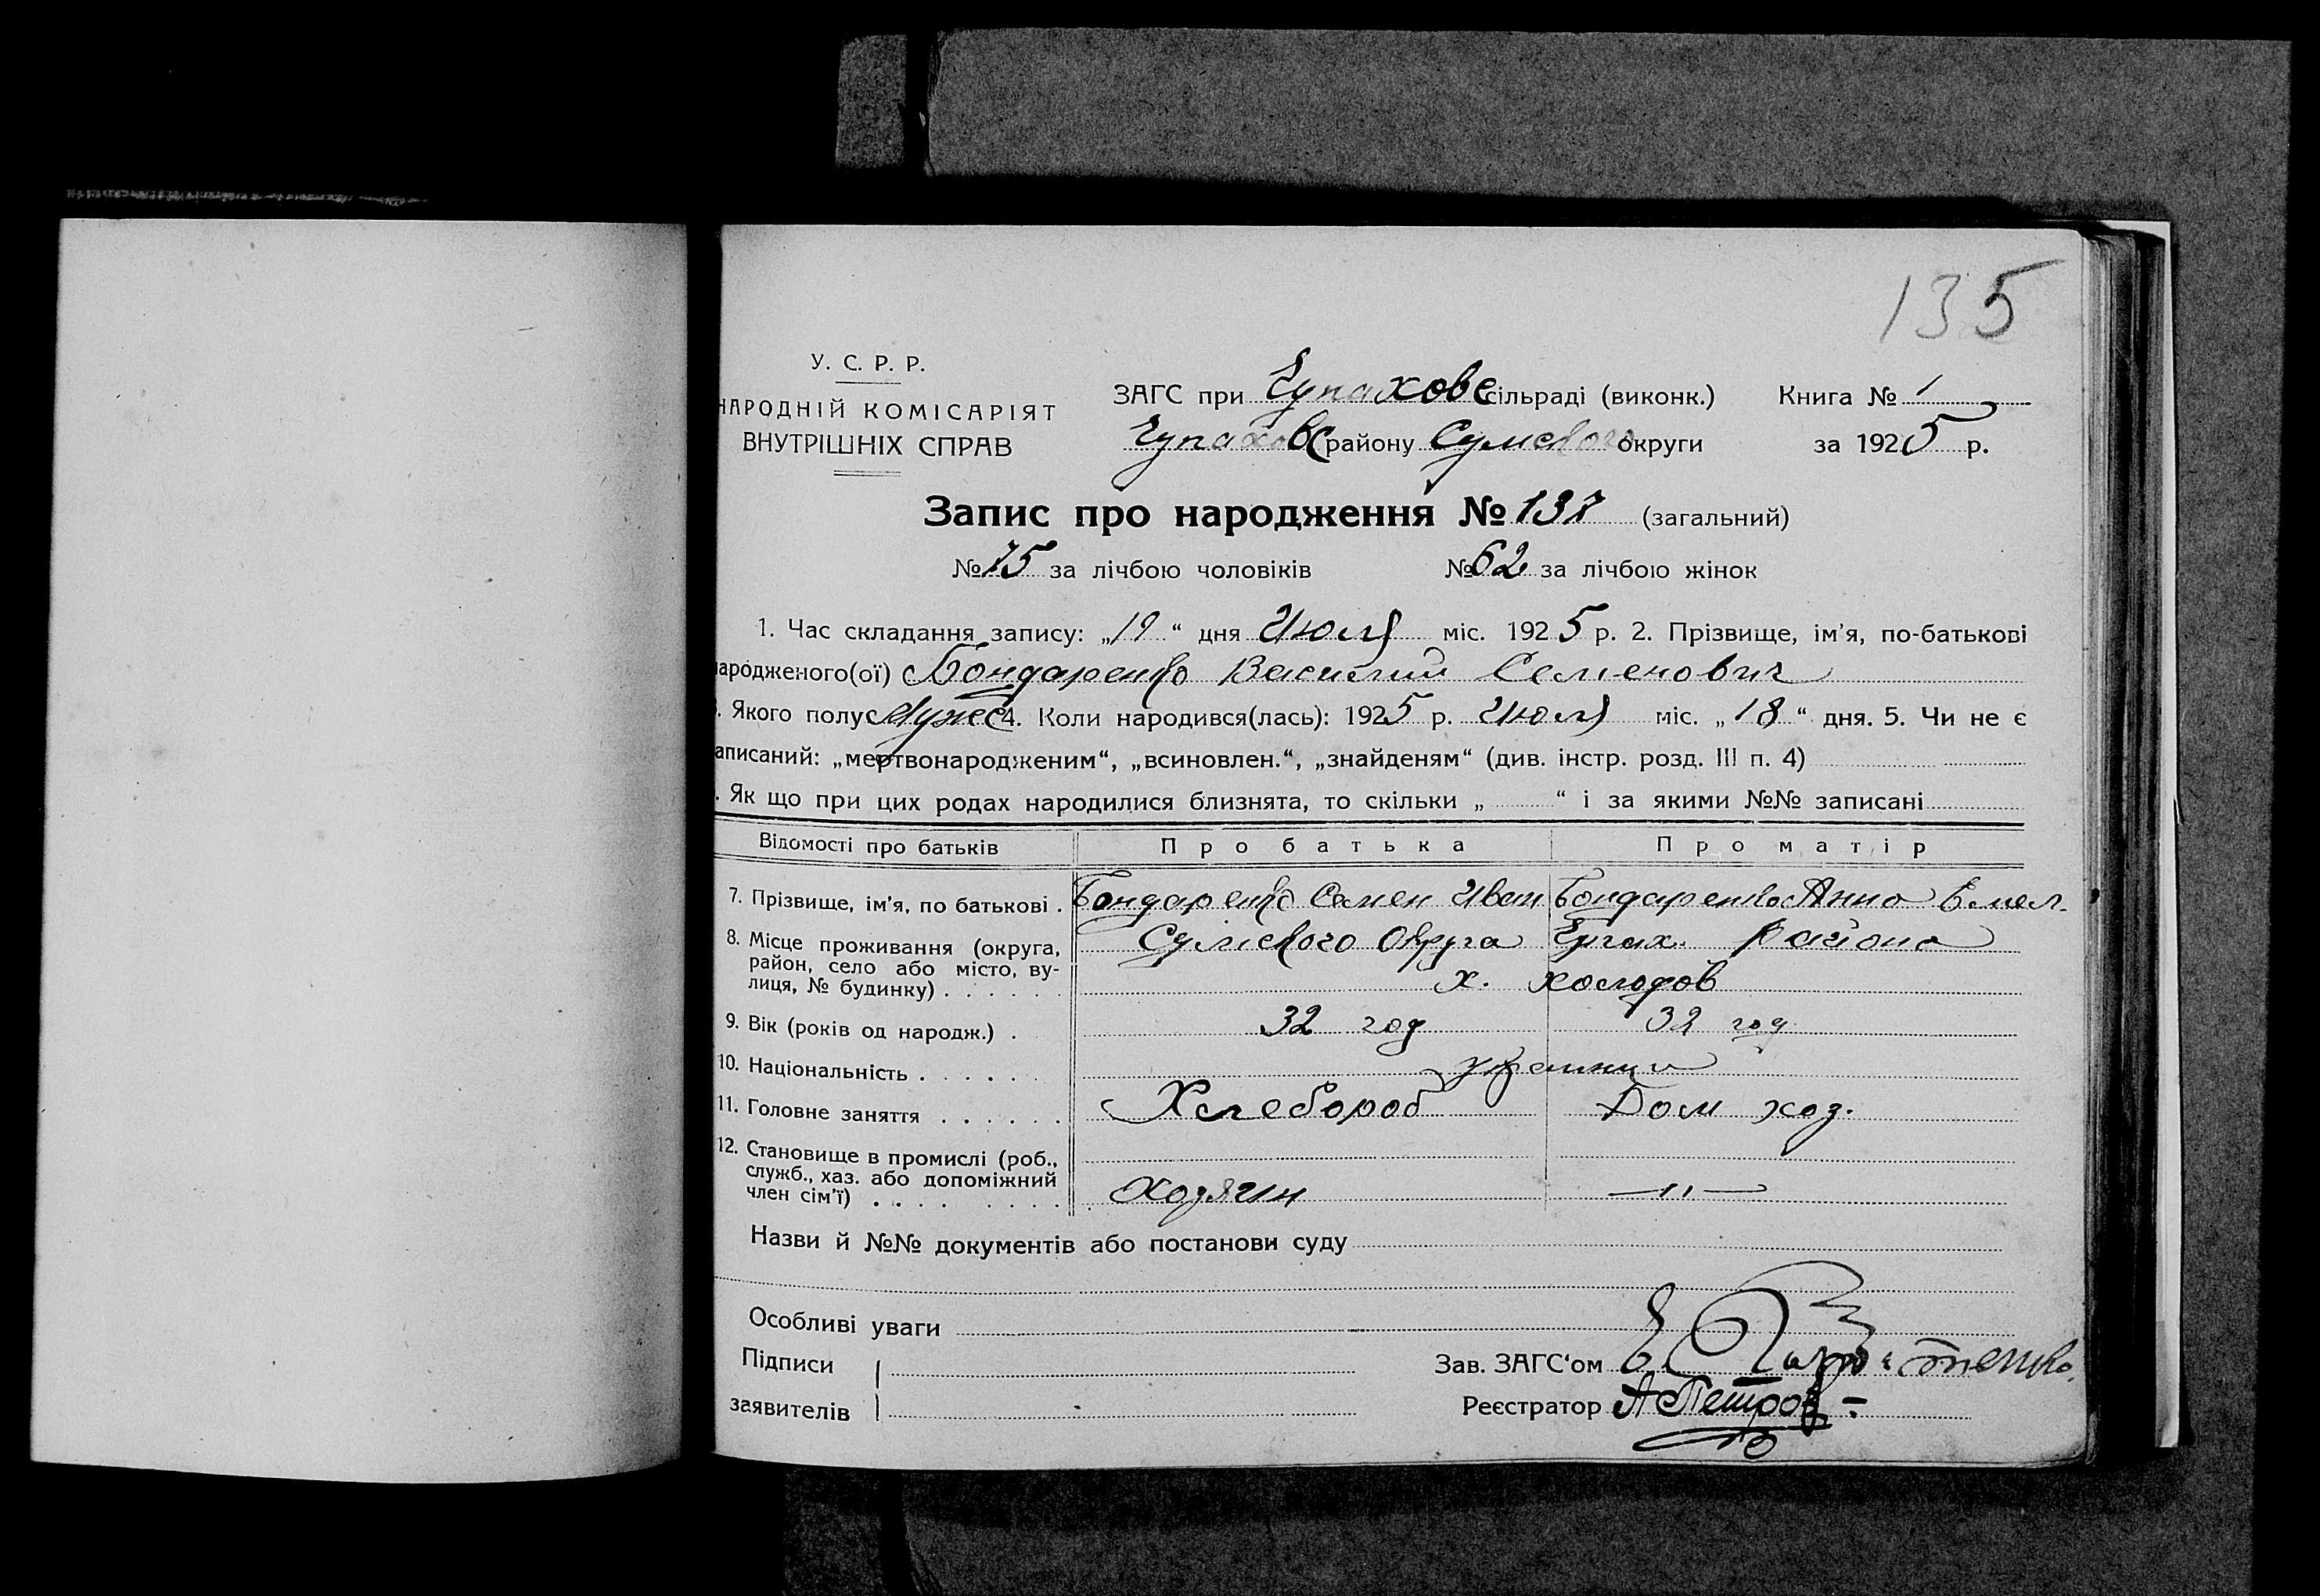 135
У. С. Р. Р.
НАРОДНІЙ КОМІСАРІЯТ
ВНУТРІШНІХ СПРАВ
ЗАГС при Чупаховс сільраді (виконк.) Книга № 1
Чупаховс району Сумского округи за 1925 р.
Запис про народження № 137 (загальний)
№ 75 за лічбою чоловіків № 62 за лічбою жінок
1. Час складання запису: „19“ дня Июля міс. 1925 р. 2. Прізвище, ім’я, по-батькові
народженого(ої) Бондаренко Василий Семенович
. Якого полу Мужес 4. Коли народився(лась): 1925 р. Июля міс. „18“ дня. 5. Чи не є
аписаний: „мертвонародженим“, „всиновлен.“, „знайденям“ (див. інстр. розд. III п. 4)
. Як що при цих родах народилися близнята, то скільки „ “ і за якими №№ записані
Відомості про батьків Про батька Про матір
7. Прізвище, ім’я, по батькові . Бондаренко Семен Иван Бондаренко Анна Емел.
8. Місце проживання (округа, Сумского Округа Чупах. Района
район, село або місто, ву-
лиця, № будинку) . . . . . . х. холодов
9. Вік (років од народж.) . 32 год 32 год
10. Національність . . . . . . украинцы
11. Головне заняття . . . . . . Хлебороб Дом хоз.
12. Становище в промислі (роб.,
служб., хаз. або допоміжний
член сім’ї) . . . . . . . . Хозяин —"—
Назви й №№ документів або постанови суду
Особливі уваги
Підписи
Зав. ЗАГС‘ом
заявителів
Реєстратор А Петров